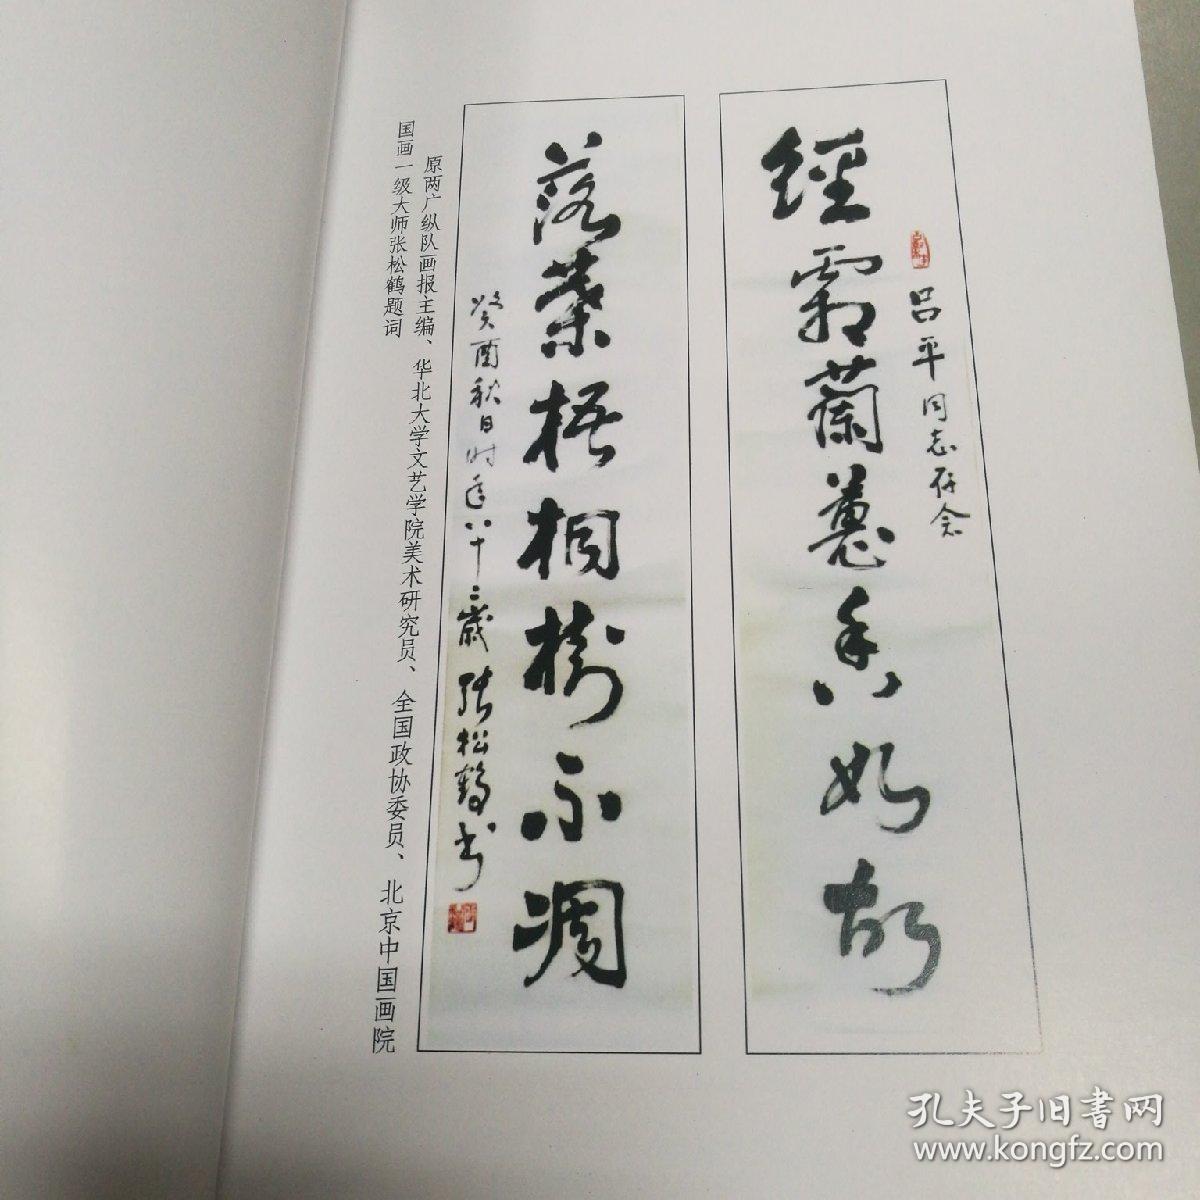 經霜蘭蕙香如故
吕平同志存念
落葉梧桐樹不凋
癸酉秋日时年八十二歲張松鹤书
原两广纵队画报主编、华北大学文艺学院美术研究员、全国政协委员、北京中国画院
国画一级大师张松鹤题词
孔夫子旧書网
www.kongfz.com